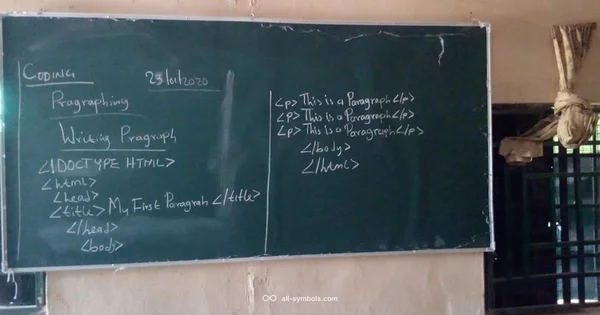 CODING
23/01/2020
Pragraphing
Writing Pragraph
<!DOCTYPE HTML>
<html>
<head>
<title> My First Paragrah </title>
</head>
<body>
<p> This is a Paragraph </p>
<p> This is a Paragraph </p>
<p> This is a Paragraph </p>
</body>
</html>
all-symbols.com